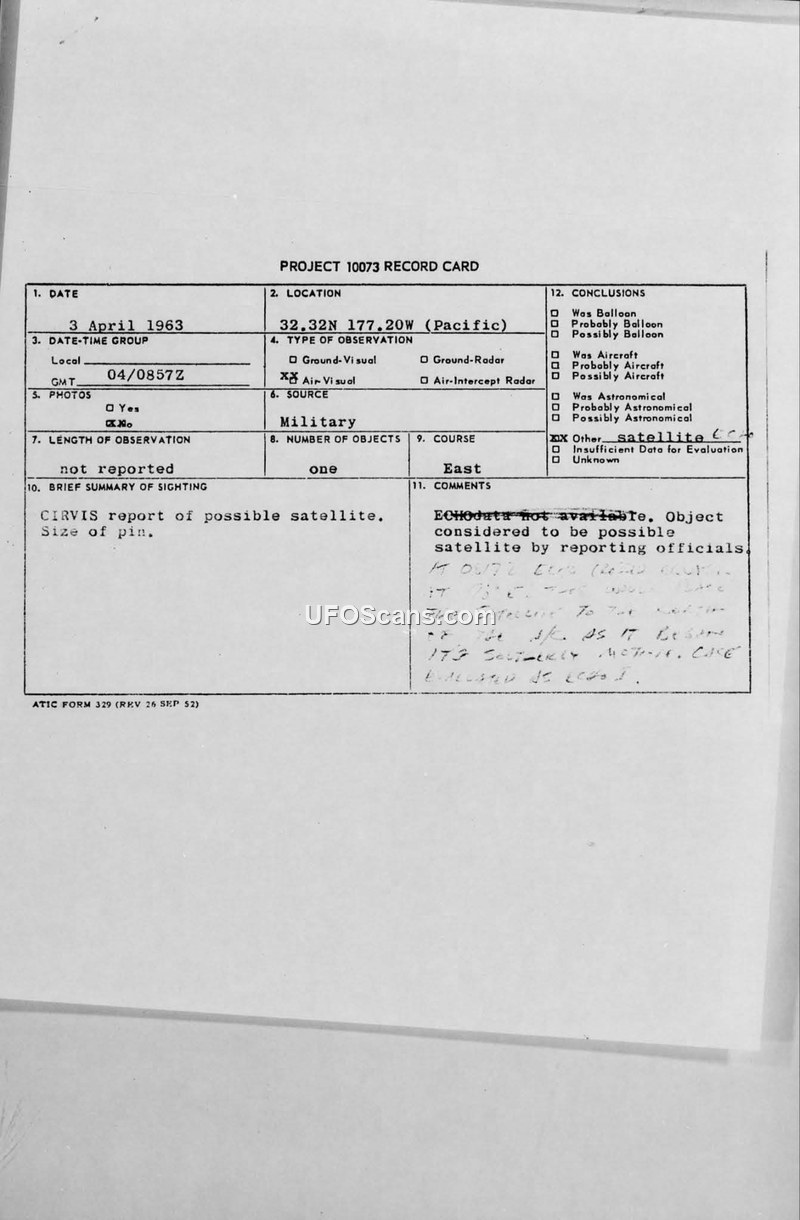 PROJECT 10073 RECORD CARD
1. DATE
3 April 1963
2. LOCATION
32.32N 177.20W (Pacific)
12. CONCLUSIONS
☐ Was Balloon
☐ Probably Balloon
☐ Possibly Balloon
☐ Was Aircraft
☐ Probably Aircraft
☐ Possibly Aircraft
☐ Was Astronomical
☐ Probably Astronomical
☐ Possibly Astronomical
XX Other satellite
☐ Insufficient Data for Evaluation
☐ Unknown
3. DATE-TIME GROUP
Local
GMT 04/0857Z
4. TYPE OF OBSERVATION
☐ Ground-Visual ☐ Ground-Radar
XX Air-Visual ☐ Air-Intercept Radar
5. PHOTOS
☐ Yes
XX No
6. SOURCE
Military
7. LENGTH OF OBSERVATION
not reported
8. NUMBER OF OBJECTS
one
9. COURSE
East
10. BRIEF SUMMARY OF SIGHTING
CIRVIS report of possible satellite.
Size of pin.
11. COMMENTS
ECHO data not available. Object
considered to be possible
satellite by reporting officials.
AT
IT
TO THE
AS IT
CASE
AS
UFOScans.com
ATIC FORM 329 (REV 26 SEP 52)